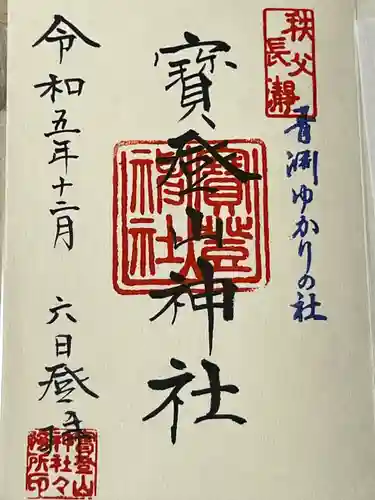 秩父
長瀞
青淵ゆかりの社
寶登山神社
寶登山
神社
令和五年十二月
六日登拝
寳登山
神社々
務所印